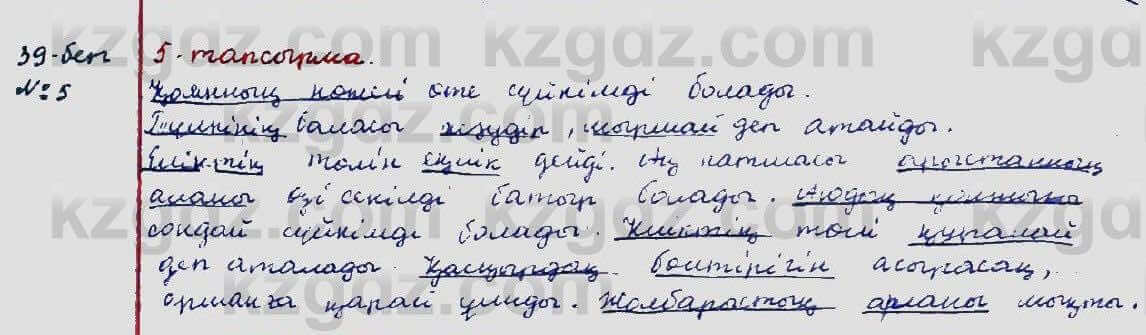 39-бет 5-тапсырма.
№ 5 Қоянның көжегі өте сүйкімді болады.
Түлкінің баласы жәудір, мыршай деп атайды.
Еліктің төлін еңлік дейді. Аң патшасы арыстанның
апаны өзі секілді батыр болады. Аюдың қонжығы
сондай сүйкімді болады. Киіктің төлі құралай
деп аталады. Қасқырдың бөлтірігін асырасаң,
орманға қарай ұлиды. Жолбарыстың арланы мықты.
kzgdz.com